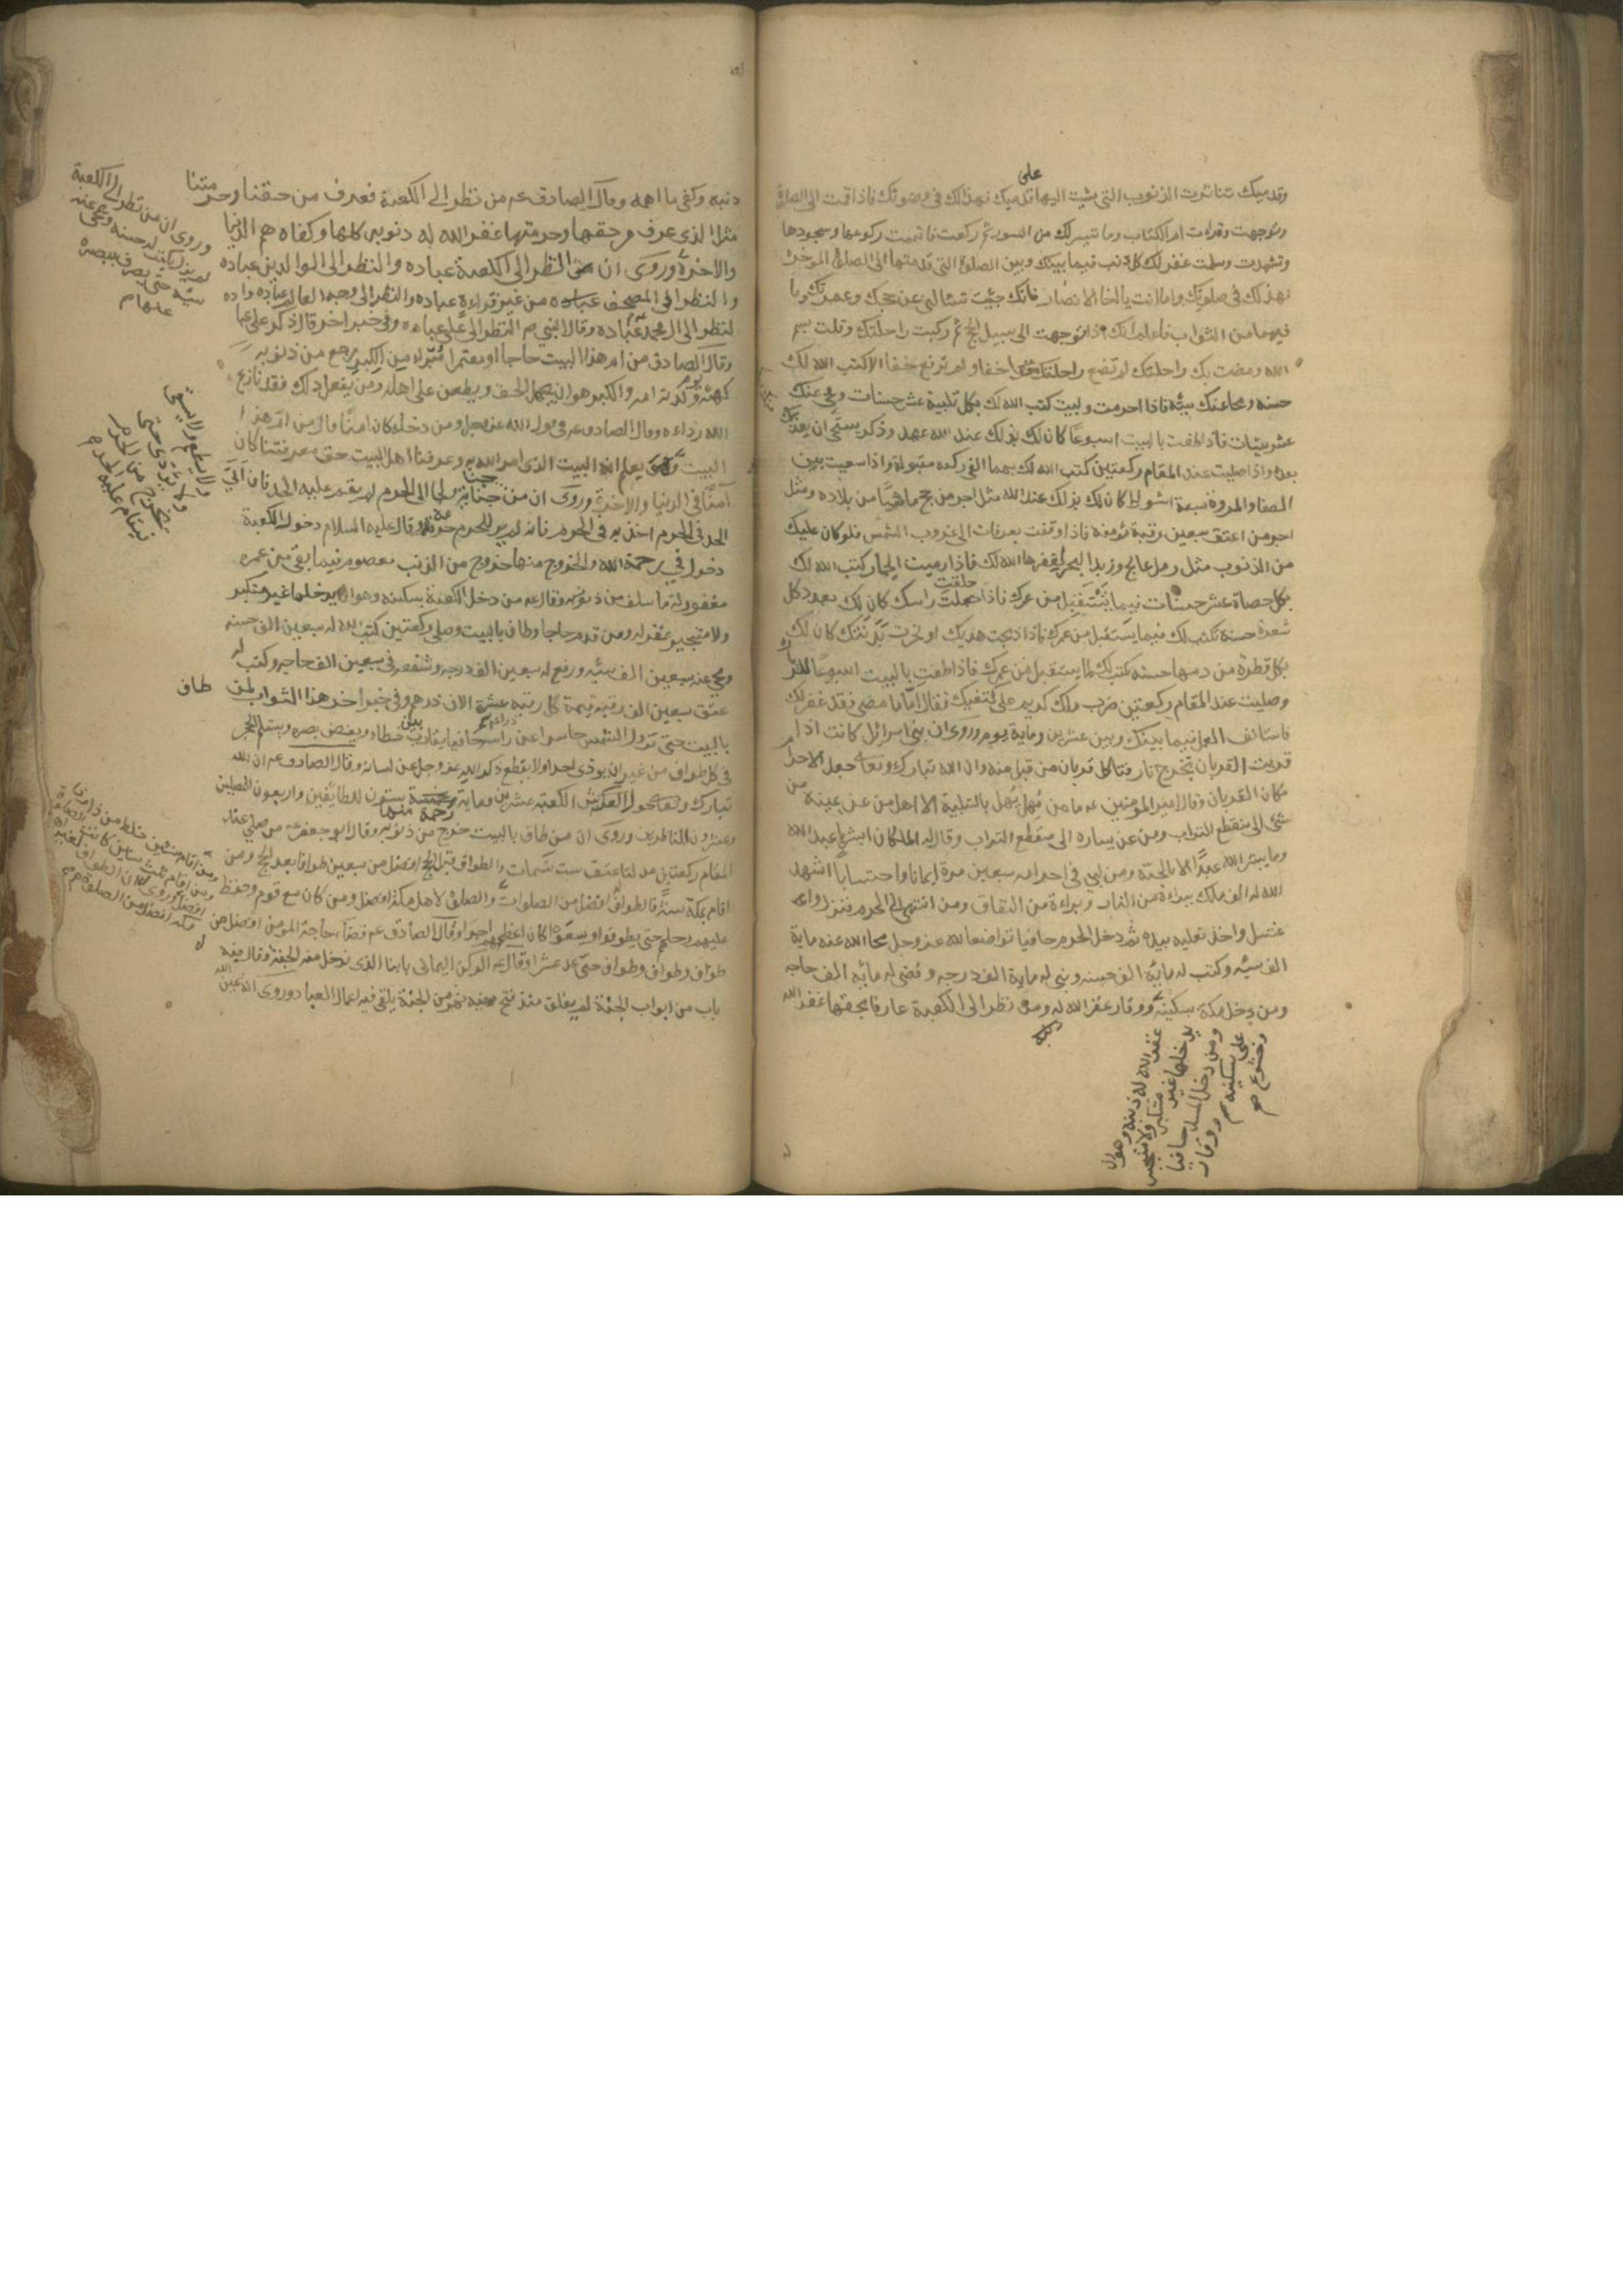 وقدميك تناثرت الذنوب التي مشت اليها على قدميك فهذا لك في وضوئك فاذا قمت الى الصلوة
وتوجهت وقرات ام الكتاب وما تيسر لك من السور ثم ركعت فاتممت ركوعها وسجودها
وتشهدت وسلمت غفر لك كل ذنب فيما بينك وبين الصلوة التي قدمتها الى الصلوة الموخرة
فهذا لك في صلوتك واما انت يا اخا الانصار فانك جئت تسالني عن حجك وعمرتك وما
فيهما من الثواب فاعلم انك اذا توجهت الى سبيل الحج ثم ركبت راحلتك وقلت بسم
الله ومضت بك راحلتك لم تضع راحلتك خفا ولم ترفع خفا الا كتب الله لك
حسنه ومحا عنك سيئه فاذا احرمت ولبيت كتب الله لك بكل تلبية عشر حسنات ومحى عنك
عشر سيئات فاذا طفت بالبيت اسبوعا كان لك بذلك عند الله عهد وذكر يستحي ان يعذبك
بعده واذا صليت عند المقام ركعتين كتب الله لك بهما الفي ركعه مقبولة واذا سعيت بين
الصفا والمروة سبعة اشواط كان لك بذلك عند الله مثل اجر من حج ماشيا من بلاده ومثل
اجر من اعتق سبعين رقبة مؤمنة فاذا وقفت بعرفات الى غروب الشمس فلو كان عليك
من الذنوب مثل رمل عالج وزبد البحر لغفرها الله لك فاذا رميت الجمار كتب الله لك
بكل حصاة عشر حسنات فيما تستقبل من عمرك فاذا حلقت راسك كان لك بعدد كل
شعرة حسنة تكتب لك فيما يستقبل من عمرك فاذا ذبحت هديك او نحرت بدنتك كان لك
بكل قطرة من دمها حسنه تكتب لك لما يستقبل من عمرك فاذا طفت بالبيت اسبوعا
وصليت عند المقام ركعتين ضرب ملك كريم على كتفيك فقال اما ما مضى فقد غفر لك
فاستانف العمل فيما بينك وبين عشرين وماية يوم وروى ان بني اسرائيل كانت اذا
قربت القربان تخرج نار فتاكل قربان من قبل منه وان الله تبارك وتعالى جعل الاحرام
مكان القربان وقال امير المؤمنين عه ما من مهل يهل بالتلبية الا اهل من عن يمينه من
شئ الى منقطع التراب ومن عن يساره الى منقطع التراب وقال له الملكان ابشر يا عبد الله
وما يبشر الله عبدا الا بالجنة ومن لبى في احرامه سبعين مرة ايمانا واحتسابا اشهد
الله له الف ملك ببراءة من النار وبراءة من النفاق ومن انتهى الى الحرم فنزل و
غتسل واخذ نعليه بيده ثم دخل الحرم حافيا تواضعا لله عز وجل محا الله عنه ماية
الف سيئه وكتب له مايه الف حسنه وبنى له ماية الف درجه وقضى له مايه الف حاجه
ومن دخل مكة بسكينة ووقار غفر الله له ومن نظر الى الكعبة عارفا بحقها غفر الله
غفر الله له ذنبه وهو ان
يدخلها غير متكبر ولا متجبر
ومن دخل المسجد حافيا
على سكينه ووقار
وخشوع صح
ذنبه وكفى ما اهمه وقال الصادق عم من نظر الى الكعبة فعرف من حقنا وحرمتنا
مثل الذي عرف من حقها وحرمتها غفر الله له ذنوبه كلها وكفاه هم الدنيا
والاخرة وروى ان النظر الى الكعبة عباده والنظر الى الوالدين عباده
والنظر الى المصحف من غير قراءة عباده والنظر الى وجه العالم عباده و
لنظر الى ال محمد عباده وقال النبي ص النظر الى علي عباده وفي خبر اخر قال ذكر علي عبا ده
وقال الصادق من ام هذا البيت حاجا او معتمرا مبرأ من الكبر رجع من ذنوبه
كهيئة يوم ولدته امه والكبر هو ان يجهل الحق ويطعن على اهله ومن يفعل ذلك فقد نازع
الله رداءه وقال الصادق عم في قول الله عز وجل ومن دخله كان امنا قال من ام هذا
البيت وهو يعلم انه البيت الذي امر الله به وعرفنا اهل البيت حق معرفتنا كان
آمنا في الدنيا والاخرة وروى ان من جنى جناية ثم لجا الى الحرم لم يقم عليه الحد فان اتى
الحد في الحرم اخذ به في الحرم فانه لم ير للحرم حرمة وقال عليه السلام دخول الكعبة
دخول في رحمة الله والخروج منها خروج من الذنب معصوم فيما بقي من عمره
مغفور له ما سلف من ذنوبه وقال عه من دخل الكعبة بسكينه وهو ان يدخلها غير متكبر
ولا متجبر غفر له ومن قدم حاجا وطاف بالبيت وصلى ركعتين كتب الله له سبعين الف حسنه
ومحي عنه سبعين الف سيئه ورفع له سبعين الف درجه وشفعه في سبعين الف حاجه وكتب له
عتق سبعين الف رقبة قيمة كل رقبه عشرة الاف درهم وفي خبر اخر هذا الثواب لمن طاف
بالبيت حتى تزول الشمس حاسرا عن راسه حافيا يقارب بين خطاه ويغض بصره ويستلم الحجر
في كل طواف من غير ان يوذي احدا ولا يقطع ذكر الله عز وجل عن لسانه وقال الصادق عه ان الله
تبارك وتعالى حول الكعبة عشرين وماية رحمة منها ستون للطائفين واربعون للمصلين
وعشرون للناظرين وروى ان من طاف بالبيت خرج من ذنوبه وقال ابو جعفر عه من صلى عند
المقام ركعتين عدلتا عتق ست نسمات والطواف قبل الحج افضل من سبعين طوافا بعد الحج ومن
اقام بمكة سنة فالطواف افضل من الصلوات والصلوة لاهل مكة افضل ومن كان مع قوم وحفظ
عليهم رحلهم حتى يطوفوا ويسعوا كان اعظمهم اجرا وقال الصادق عم قضاء حاجة المومن افضل من
طواف وطواف وطواف حتى عد عشرا وقال عه الركن اليماني بابنا الذي ندخل منه الجنة وقال فيه
باب من ابواب الجنة لم يغلق منذ فتح وفيه نهر من الجنة يلقى فيه اعمال العباد وروى انه يمين الله
وروى ان من نظر الى الكعبة
لم يزل يكتب له حسنه ويمحى عنه
سيئه حتى يصرف ببصره
عنها م
ولا يطعم ولا يسقى
ولا يؤذى حتى
يخرج من الحرم
فيقام عليه الحد